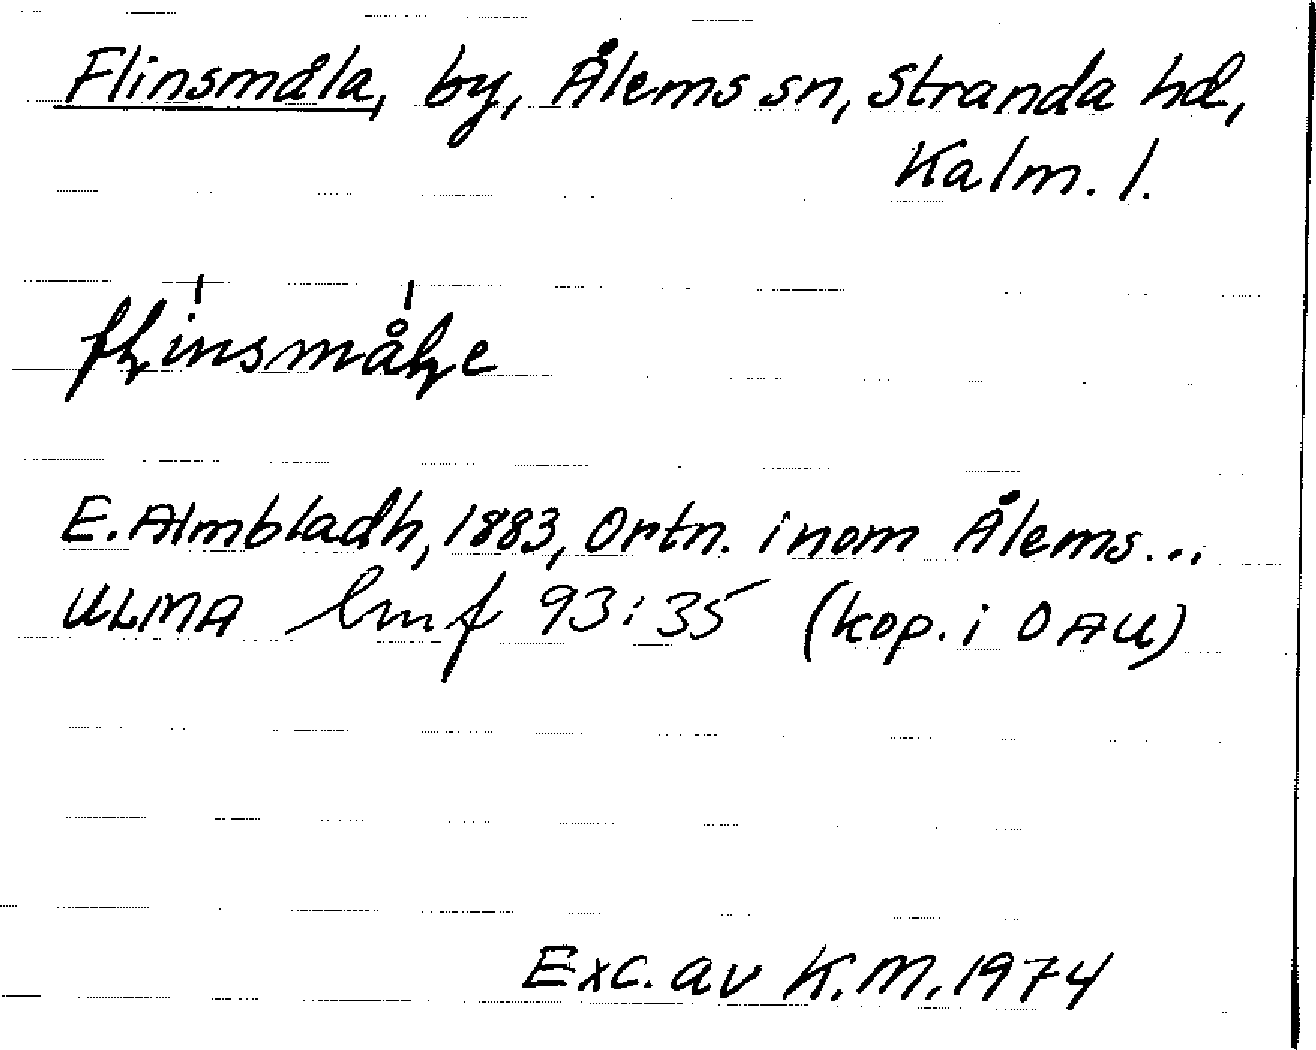 Flinsmåla, by, Ålems sn, Stranda hd,
Kalm. l.
fɭinsmåɭe
E. Almbladh, 1883, Ortn. inom Ålems...
ULMA lmf 93:35 (kop. i OAU)
Exc. av K.M. 1974